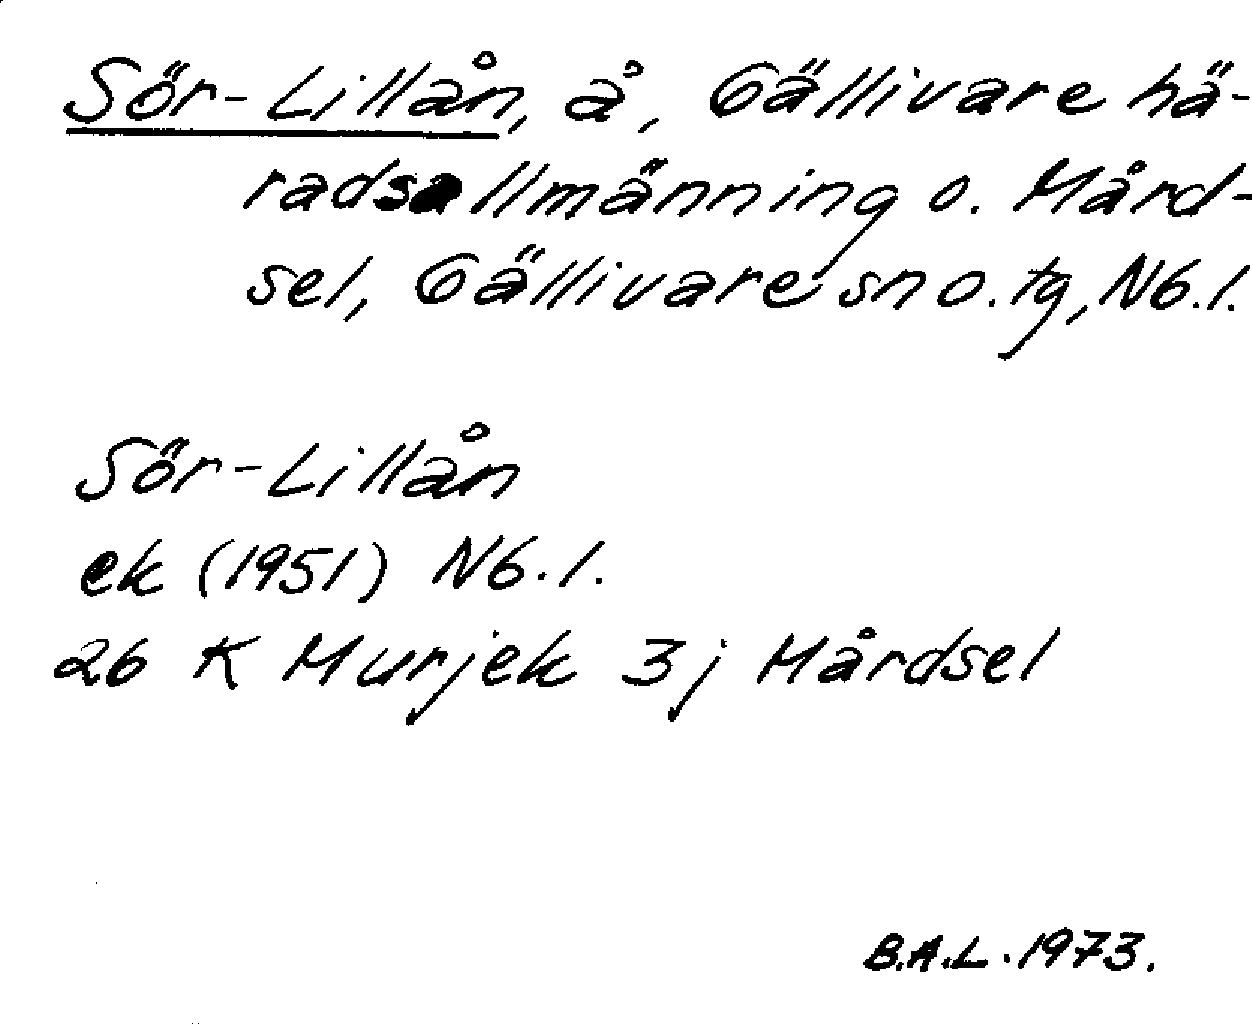 Sör-Lillån, å, Gällivare hä-
radsallmänning o. Mård-
sel, Gällivare sn o. tg, Nb. l.
Sör-Lillån
ek (1951) Nb. l.
26 K Murjek 3j Mårdsel
B.A.L. 1973.